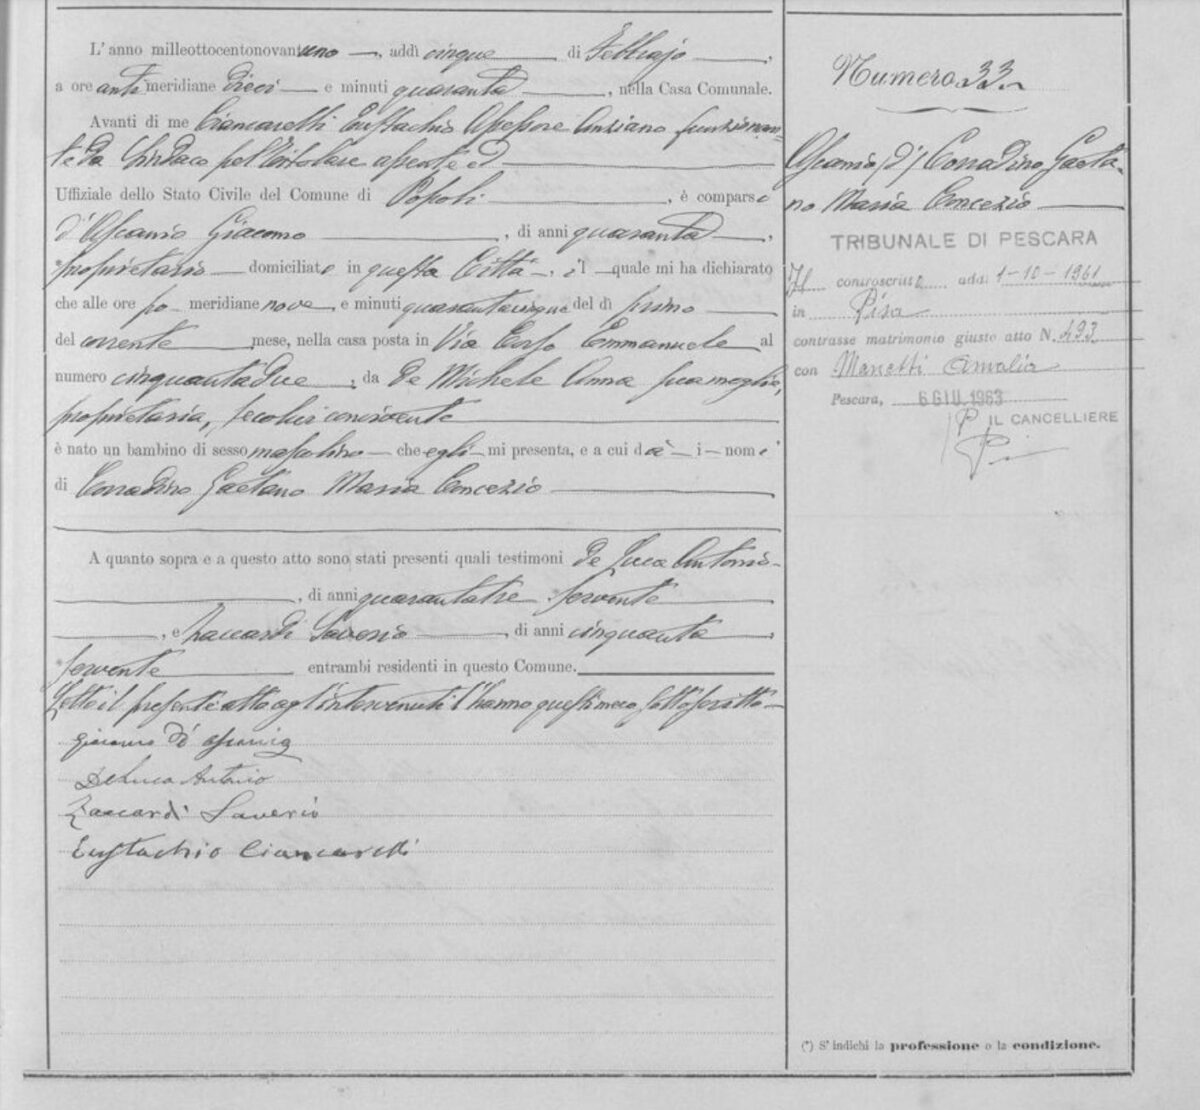 L'anno milleottocentonovantuno, addì cinque di Febbrajo,
a ore anti meridiane dieci e minuti quaranta, nella Casa Comunale.
Avanti di me Ciancarelli Eustachio Assessore Anziano funzionan-
te da Sindaco pel titolare assente ed
Uffiziale dello Stato Civile del Comune di Popoli, è comparso
d'Ascanio Giacomo, di anni quaranta,
proprietario domiciliato in questa Città, il quale mi ha dichiarato
che alle ore po meridiane nove e minuti quarantacinque del dì primo
del corrente mese, nella casa posta in Via Corso Emmanuele al
numero cinquantadue, da de Michele Anna sua moglie,
proprietaria, seco lui convivente
è nato un bambino di sesso mascolino che egli mi presenta, e a cui dà i nomi
di Corradino Gaetano Maria Concezio
A quanto sopra e a questo atto sono stati presenti quali testimoni de Luca Antonio
, di anni quarantatre servente
, e Zaccardi Saverio, di anni cinquanta,
servente entrambi residenti in questo Comune.
Letto il presente atto agl'intervenuti l'hanno questi meco sottoscritto
Giacomo d'Ascanio
De Luca Antonio
Zaccardi Saverio
Eustachio Ciancarelli
Numero 33
Ascanio (d') Corradino Gaeta-
no Maria Concezio
TRIBUNALE DI PESCARA
Il controscritto addì 1-10-1961
in Pisa
contrasse matrimonio giusto atto N. 493
con Manetti Amalia
Pescara, 6 GIU. 1963
IL CANCELLIERE
(*) S'indichi la professione o la condizione.